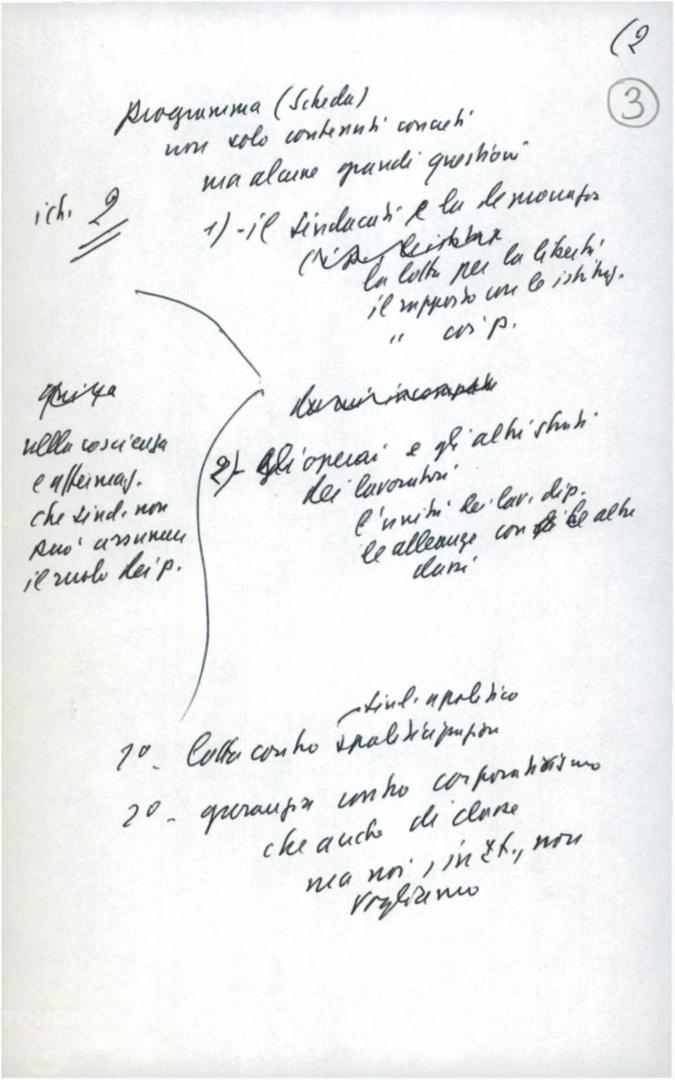 (2
3
Programma (Scheda)
non solo contenuti concreti
ma alcune grandi questioni
ich. 2
1) - il sindacati e la democrazia
la lotta per la libertà
il rapporto con le istituz.
" coi p.
nella coscienza
e affermaz.
che sind. non
può assumere
il ruolo dei p.
2) - gli operai e gli altri strati
dei lavoratori
l'unità dei lav. dip.
le alleanze con le altre
classi
sind. apolitico
1° - lotta contro spoliticizzazione
2° - garanzia contro corporativismo
che anche di classe
ma noi, in It., non
vogliamo